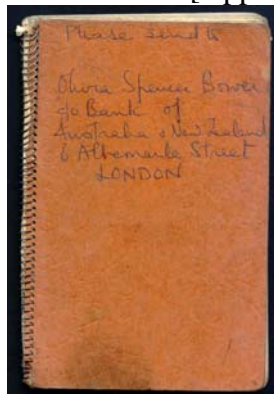 Please send to
Olivia Spencer Bower
c/o Bank of
Australia & New Zealand
6 Albemarle Street
LONDON